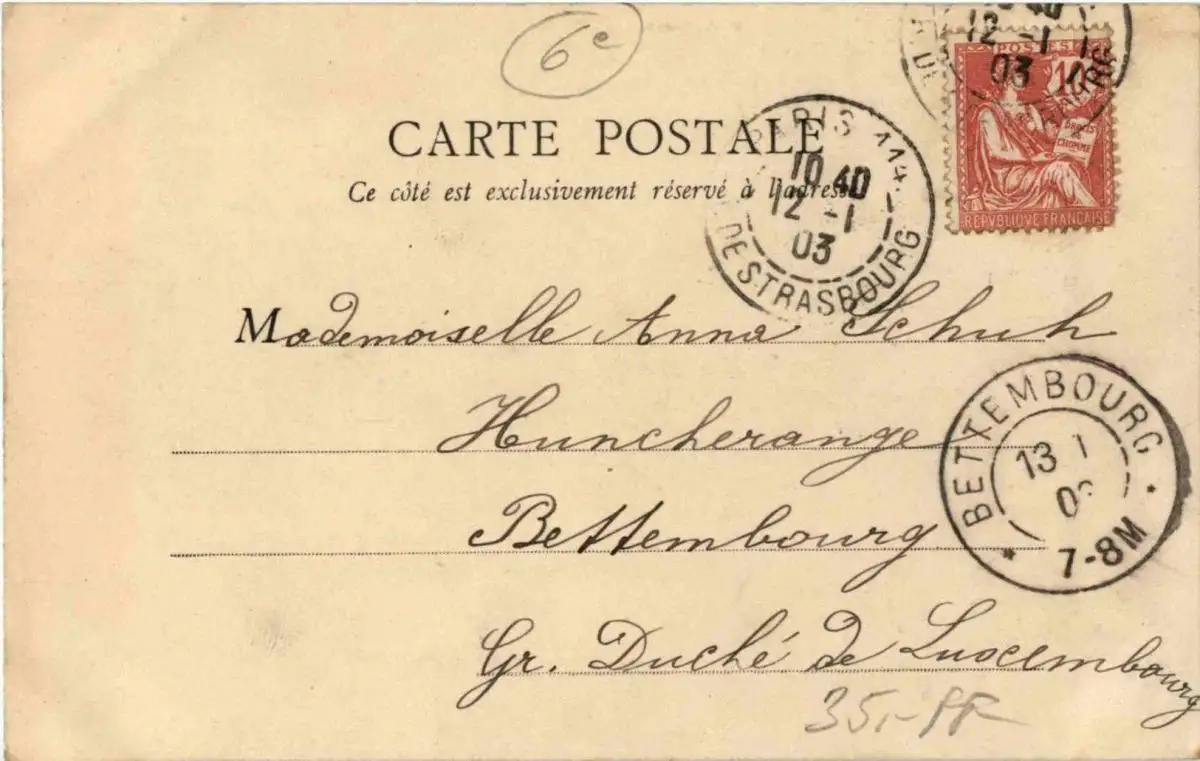 6e
CARTE POSTALE
Ce côté est exclusivement réservé à l'adresse
10 40
12 -1
03
POSTES
10
DROITS
HOMME
REPVBLIQVE FRANÇAISE
PARIS 114.
10 40
12 -1
03
DE STRASBOURG
Mademoiselle Anna Schuh
Huncherange
Bettembourg
Gr. Duché de Luxembourg
BETTEMBOURG
13 1
7-8M
35,-